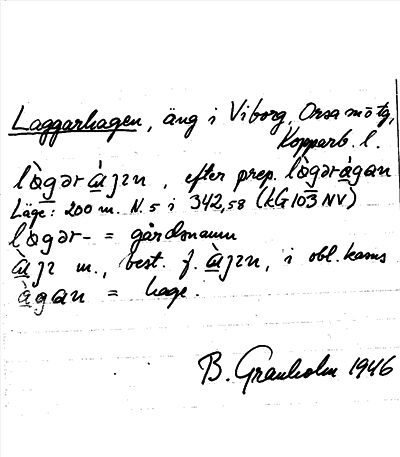 Laggarhagen, äng i Viborg, Orsa mötg,
Kopparb. l.
lògərájɪn, efter prep. lògərágan
Läge: 200 m. N. 5 i 342,58 (kG 103 NV)
lògər- = gårdsnamn
àjɪ m., best. f. àjɪn, i obl. kasus
àgan = hage.
B. Granholm 1946